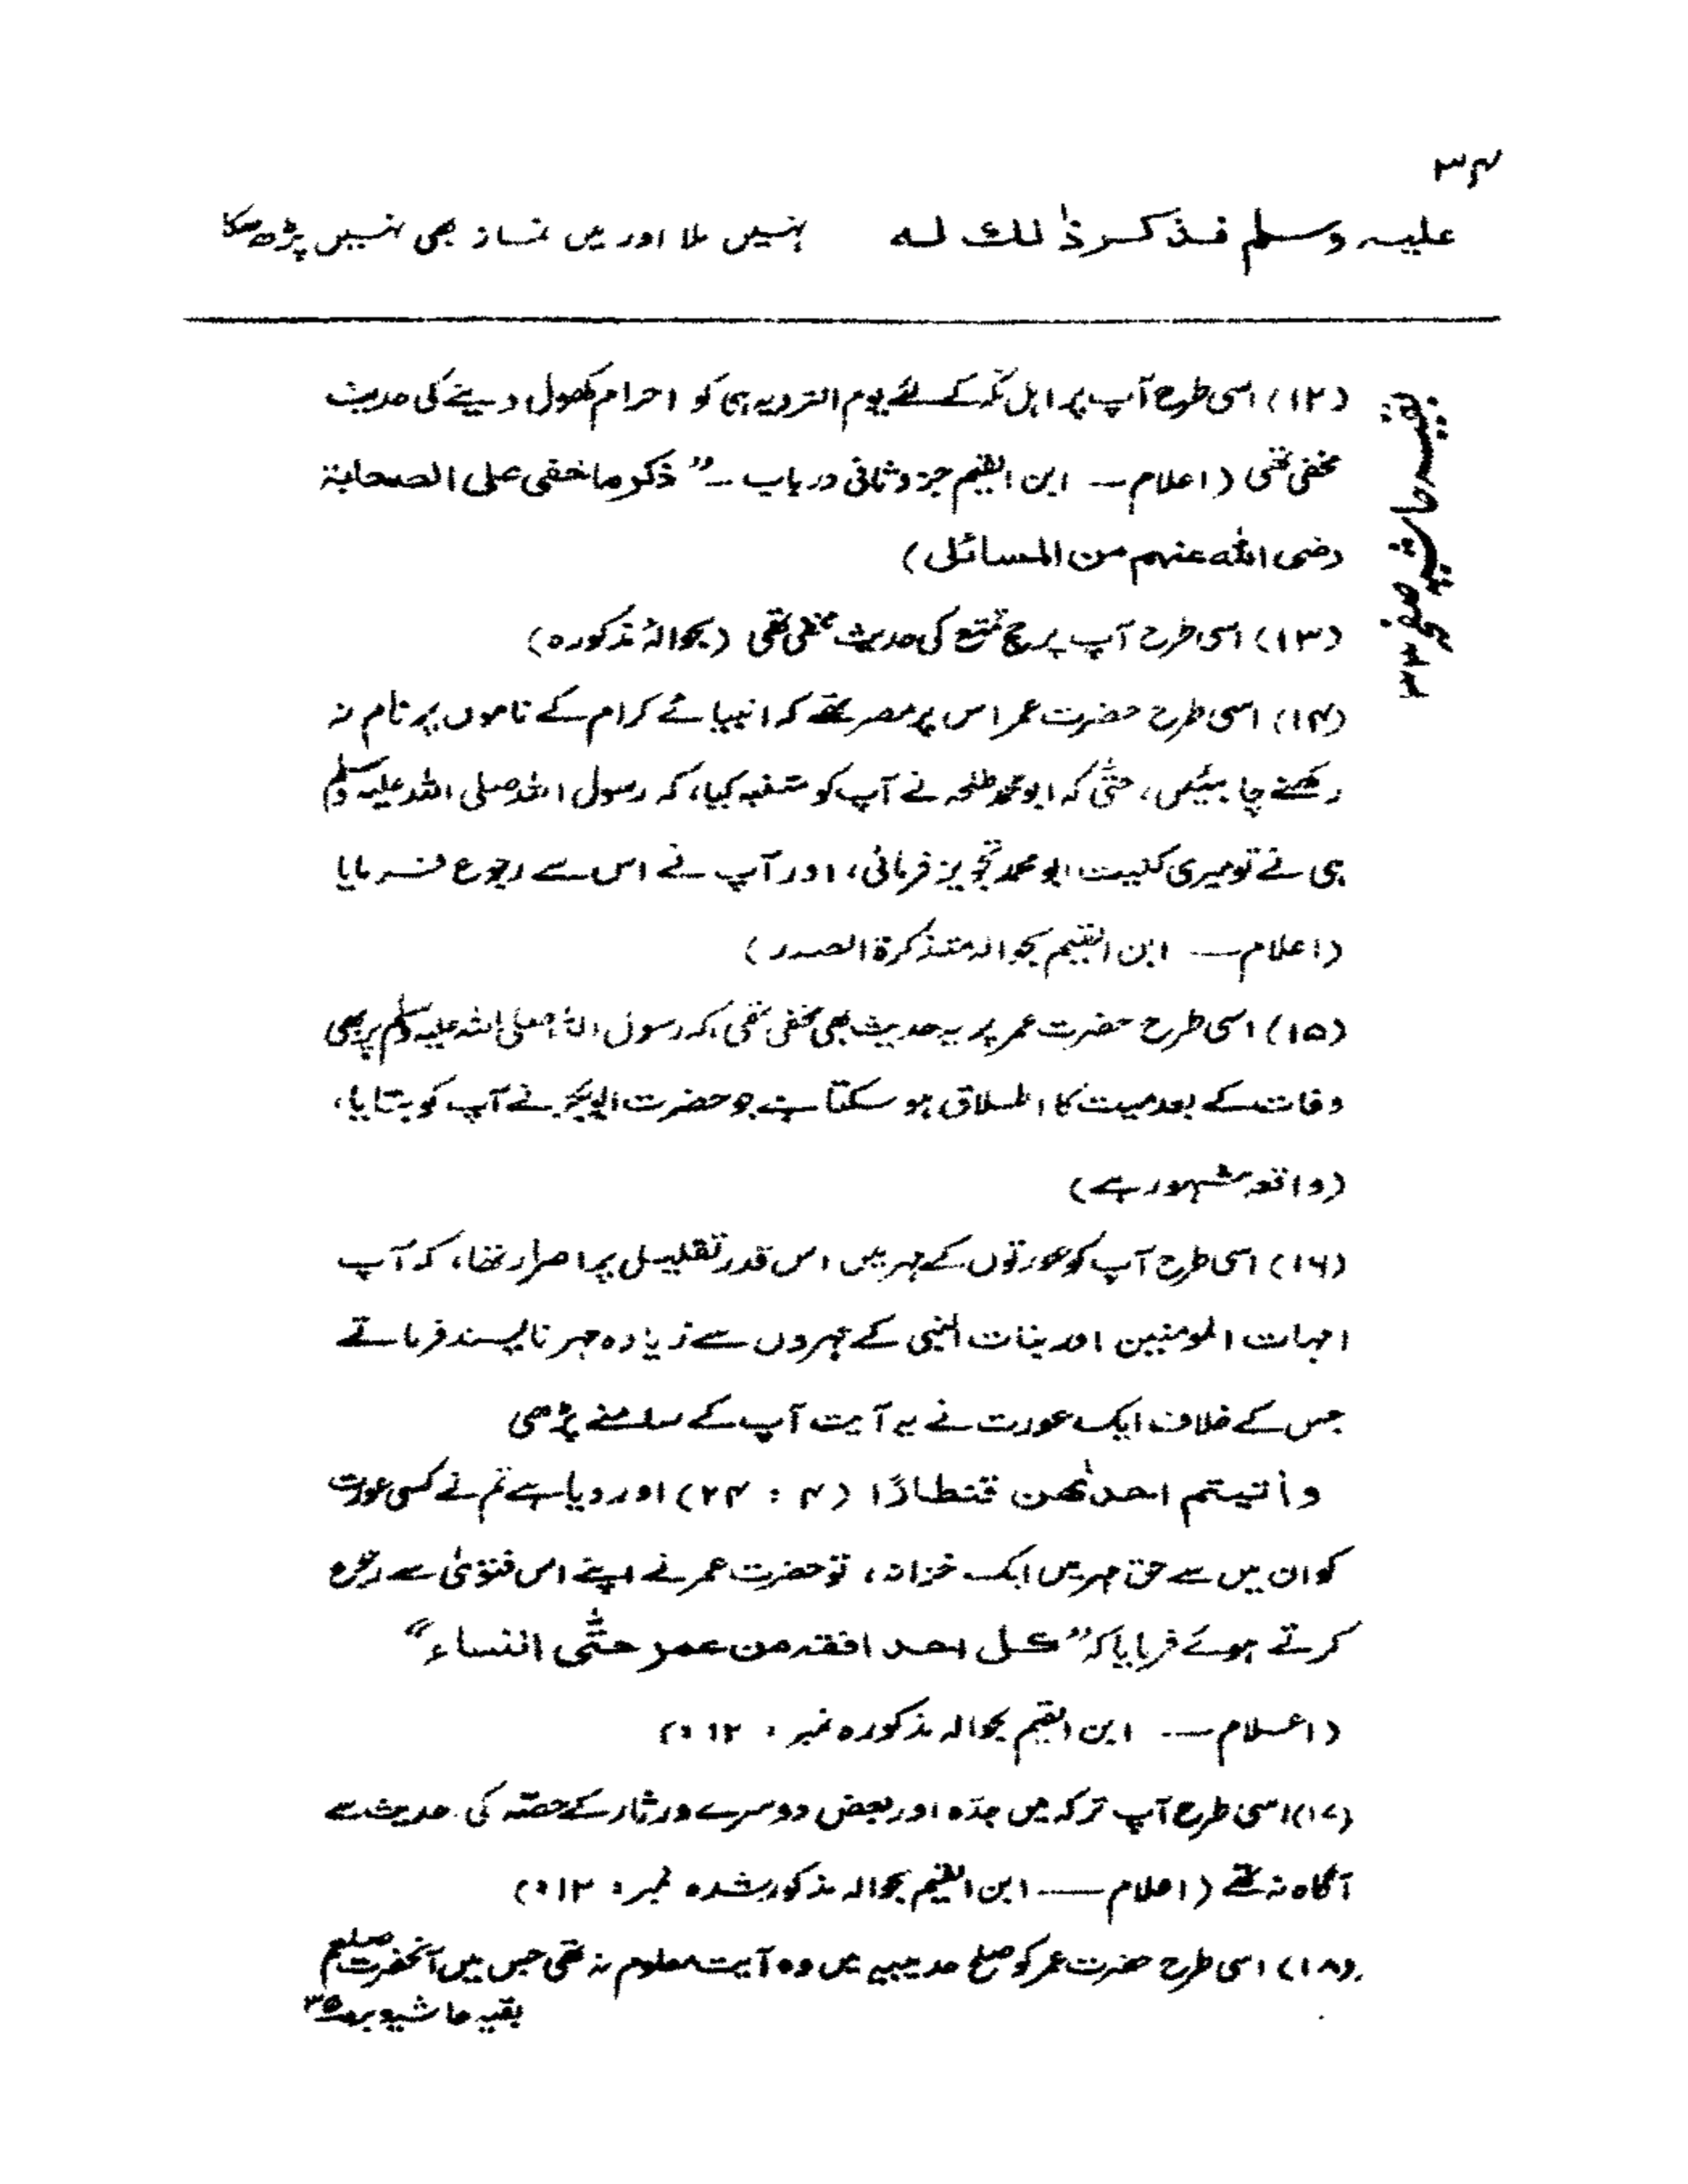 ۳۴
علیہ وسلم فذکر ذٰلک لہ نہیں ملا اور میں نماز بھی نہیں پڑھ سکا
بقیہ حاشیہ صفحہ ۳۳
(۱۲) اسی طرح آپ پر اہل مکہ کے لئے یوم الترویہ ہی کو احرام کھول دینے کی حدیث
مخفی تھی (اعلام — ابن القیم جزو ثانی در باب — ”ذکر ما خفی علی الصحابۃ
رضی اللہ عنہم من المسائل)
(۱۳) اسی طرح آپ پر حج تمتع کی حدیث مخفی تھی (بحوالۂ مذکورہ)
(۱۴) اسی طرح حضرت عمر اس پر مصر تھے کہ انبیائے کرام کے ناموں پر نام نہ
رکھنے چاہئیں، حتّٰی کہ ابو محمد طلحہ نے آپ کو متنبہ کیا، کہ رسول اللہ صلی اللہ علیہ وسلم
ہی نے تو میری کنیت ابو محمد تجویز فرمائی، اور آپ نے اس سے رجوع فرمایا
(اعلام — ابن القیم بحوالہ متذکرۃ الصدر)
(۱۵) اسی طرح حضرت عمر پر یہ حدیث بھی مخفی تھی، کہ رسول اللہ صلی اللہ علیہ وسلم پر بھی
وفات کے بعد میت کا اطلاق ہو سکتا ہے جو حضرت ابوبکر نے آپ کو بتایا،
(واقعہ مشہور ہے)
(۱۶) اسی طرح آپ کو عورتوں کے مہر میں اس قدر تقلیل پر اصرار تھا، کہ آپ
امہات المومنین اور بنات النبی کے مہروں سے زیادہ مہر ناپسند فرماتے
جس کے خلاف ایک عورت نے یہ آیت آپ کے سامنے پڑھی
وأتیتم احدٰھن قنطارًا (۴ : ۲۴) اور دیا ہے تم نے کسی عورت
کو ان میں سے حق مہر میں ایک خزانہ، تو حضرت عمر نے اپنے اس فتویٰ سے رجوع
کرتے ہوئے فرمایا کہ ”کل احد افقہ من عمر حتّٰی النساء“
(اعلام — ابن القیم بحوالہ مذکورہ نمبر : ۱۲ ،)
(۱۷) اسی طرح آپ ترکہ میں جدّہ اور بعض دوسرے ورثار کے حصّہ کی حدیث سے
آگاہ نہ تھے (اعلام — ابن القیم بحوالہ مذکور شدہ نمبر : ۱۳ ،)
(۱۸) اسی طرح حضرت عمر کو صلح حدیبیہ میں وہ آیت معلوم نہ تھی جس میں آنحضرت صلعم
بقیہ حاشیہ برصت ۳۵